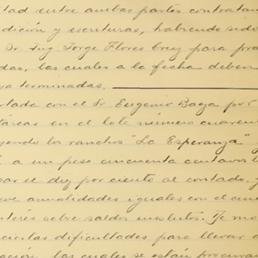 tad entre ambas partes contratan
dición y escrituras, habiendo sido
Sr. Ing. Jorge Flores Grey para pro
das, las cuales a la fecha deben
ya terminadas.
tada con el Sr Eugenio Baga por
táreas en el lote número cuaren
yendo los ranchos "La Esperanza" y
a un peso cincuenta centavos
gar el diez por ciento al contado, y
ve anualidades iguales con el
interés sobre saldos insolutos. Se me
ciertas dificultades para llevar a
las cuales se están procuran